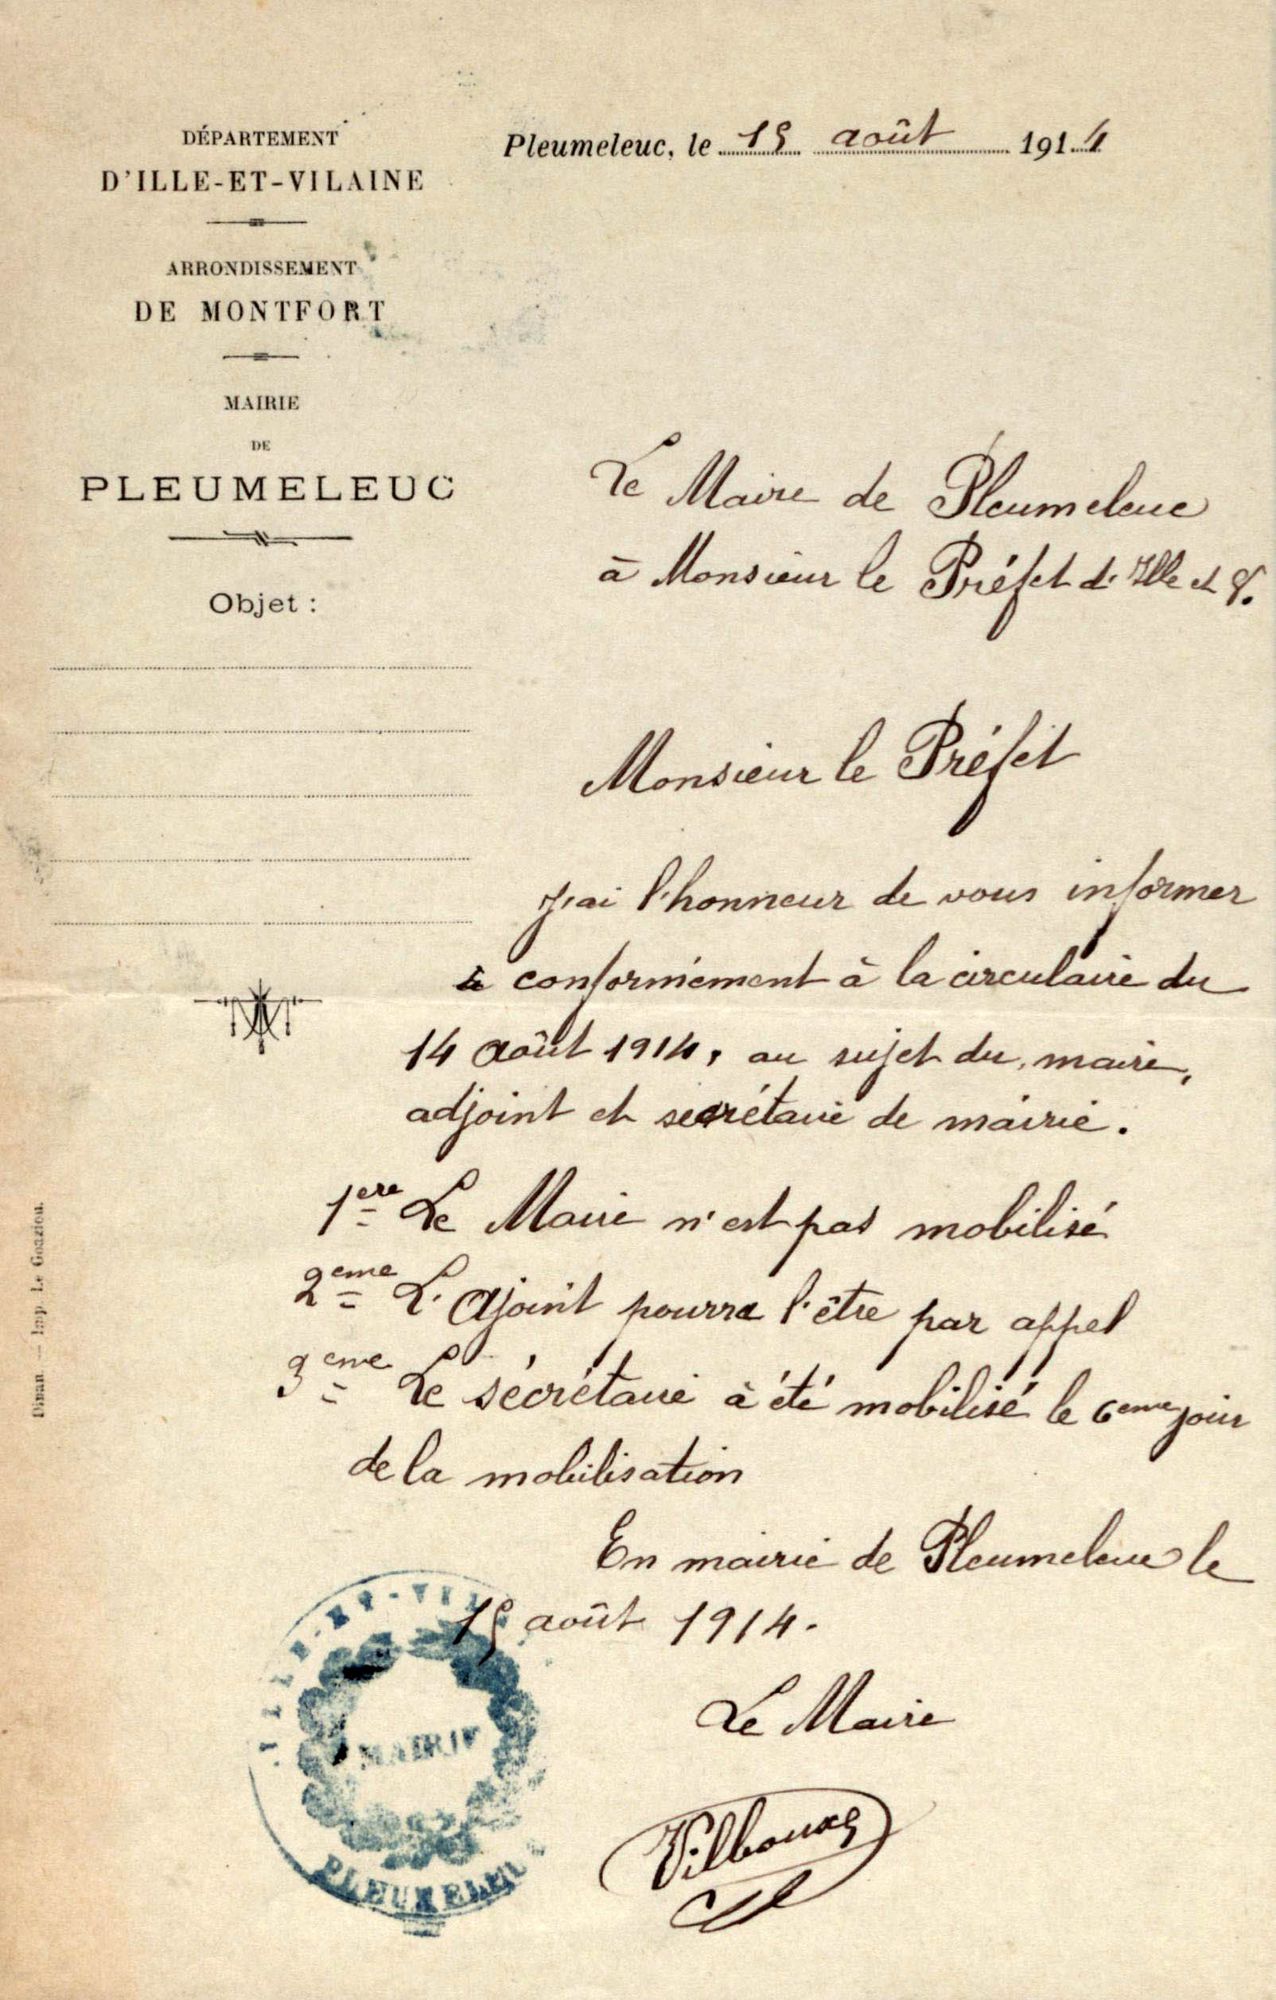 DÉPARTEMENT
D'ILLE-ET-VILAINE
ARRONDISSEMENT
DE MONTFORT
MAIRIE
DE
PLEUMELEUC
Objet :
Pleumeleuc, le 15 août 1914
Le Maire de Pleumeleuc
à Monsieur le Préfet d'Ille et V.
Monsieur le Préfet
J'ai l'honneur de vous informer
conformément à la circulaire du
14 août 1914, au sujet du maire,
adjoint et secrétaire de mairie.
1ere Le Maire n'est pas mobilisé
2eme L'Ajoint pourra l'être par appel
3eme Le sécrétaire à été mobilisé le 6eme jour
de la mobilisation
En mairie de Pleumeleuc le
15 août 1914.
Le Maire
ILLE-ET-VIL
MAIRIE
PLEUMELEUC
Dinan. — Imp. Le Goaziou.